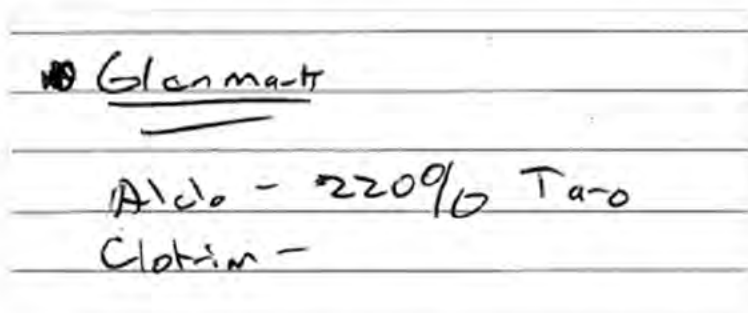 Glenmark
Alclo - 220% Taro
Clotrim -